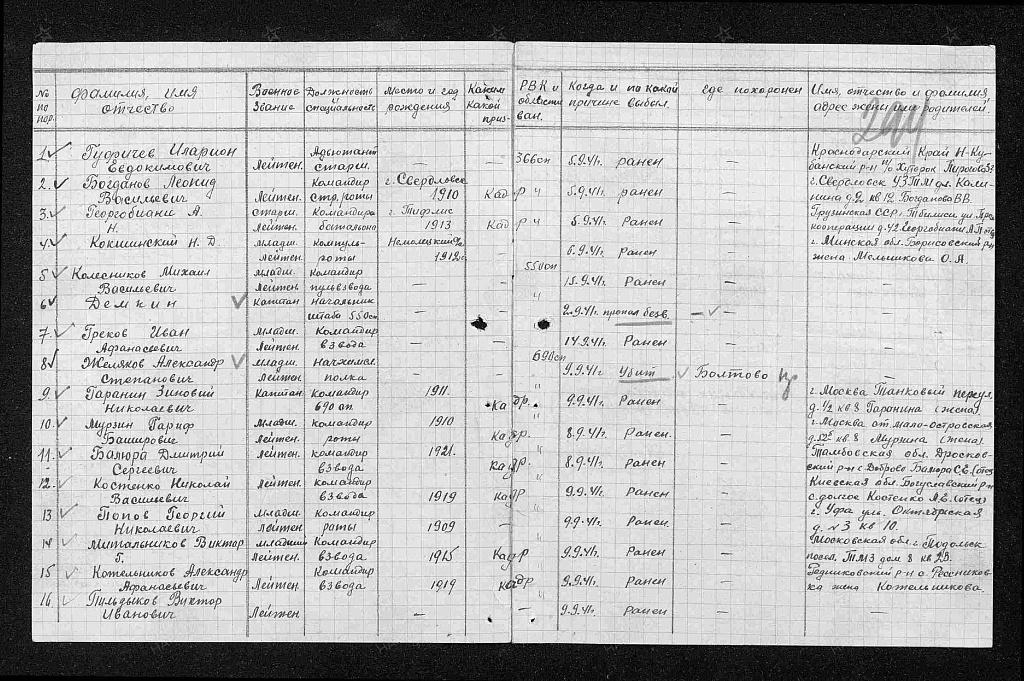 № по пор. Фамилия, имя отчество Военное звание Должность специальность Место и год рождения Каким Какой приз- РВК и области ван. Когда и по какой причине выбыл. Где похоронен Имя, отчество и фамилия, адрес жены или родителей
1 Иларион Евдокимович Лейтен. Адъютант старш. — — 366сп 5.9.41г. ранен — Краснодарский Край Н-Кубанский р-н
2. Богданов Леонид Васильевич Лейтен. Командир стр. роты г. Свердловск 1910 Кадр ч 5.9.41г. ранен — г. Свердловск УЗТМ ул. Калинина д.2 кв 12 Богданова В.В.
3. Георгобиани А. Н. старш. Лейтен. Командир батальона г. Тифлис 1913 Кадр ч 5.9.41г. Ранен — Грузинская ССР г. Тбилиси
4 Кокшинский Н. Д. младш. Лейтен. роты 1912г. 6.9.41г. Ранен — г. Минская обл. Борисовский р-н жена Мельникова О. А.
5 Колесников Михаил Васильевич младш. Лейтен. Командир пульвзвода — — 550сп 15.9.41г. Ранен — —
6 Демкин Капитан Начальник штаба 550сп — — ч 2.9.41г. пропал безв. — —
7. Греков Иван Афанасьевич Младш. Лейтен. Командир взвода — — " 14.9.41г. Ранен — —
8 Желяков Александр Степанович младш. Лейтен. Начхимсл. полка — — 690сп 9.9.41г. Убит Болтово —
9. Гаранин Зиновий Николаевич Капитан командир 690 сп. 1911. кадр. " 9.9.41г. Ранен — г. Москва Танковый переул. д. 1/2 кв 8 Гаранина (жена)
10. Мурзин Гариф Баширович Младш. Лейтен. командир роты 1910 кадр. " 8.9.41г. Ранен — г. Москва кв 8 Мурзина (жена)
11. Балюра Дмитрий Сергеевич Лейтен. командир взвода 1921. кадр. " 8.9.41г. Ранен — Тамбовская обл.
12. Костенко Николай Васильевич Лейтен. командир взвода 1919 кадр " 9.9.41г. Ранен — Киевская обл. Богуславский р-н с. Долгое Костенко (отец)
13 Попов Георгий Николаевич Младш. Лейтен. Командир роты 1909 — 9.9.41г. Ранен. — г. Уфа ул. Октябрьская д. №3 кв 10.
14 Митальников Виктор Г. младший Лейтен. Командир взвода 1915 Кадр 9.9.41г. Ранен — Московская обл. г. Подольск посел. ТМЗ дом 8 кв 23.
15 Котельников Александр Афанасьевич Лейтен. Командир взвода 1919 Кадр 9.9.41г. Ранен — жена Котельникова.
16. Пильдыков Виктор Иванович Лейтен — 9.9.41г. Ранен — —